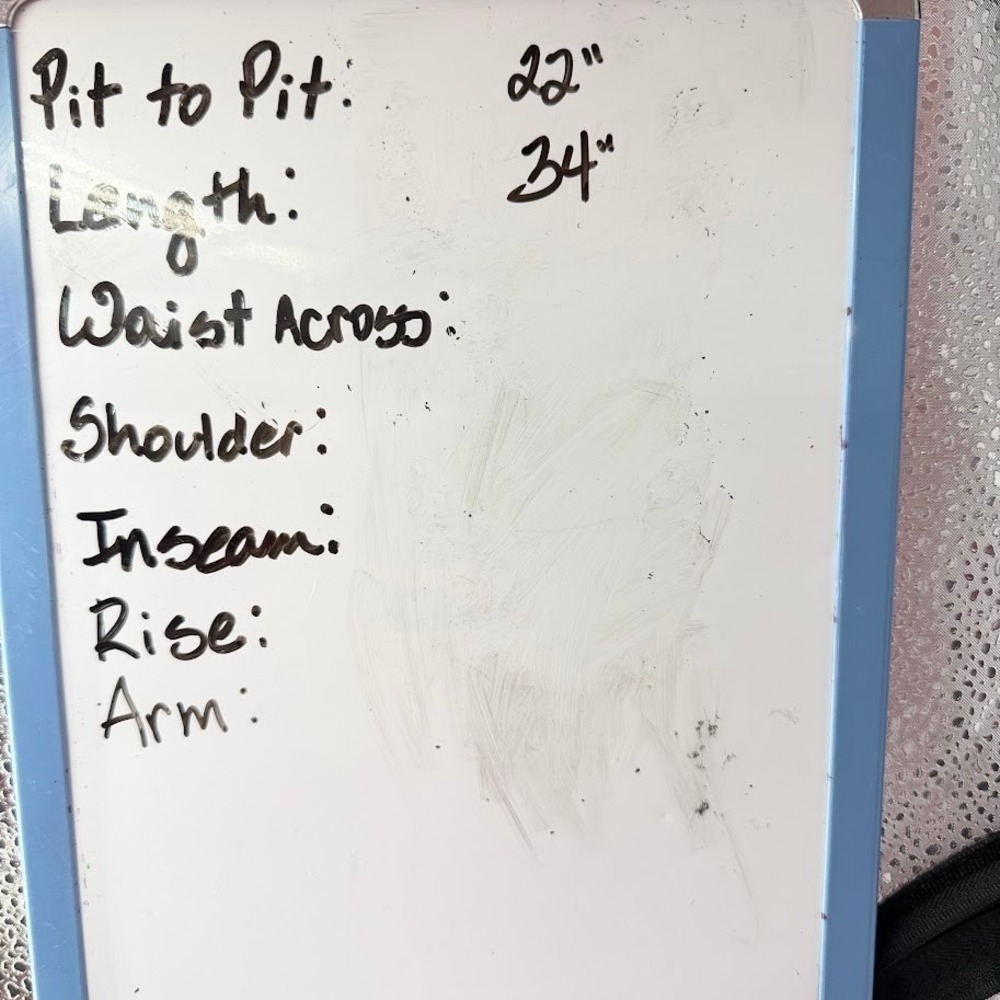 Pit to Pit: 22"
Length: 34"
Waist Across:
Shoulder:
Inseam:
Rise:
Arm: